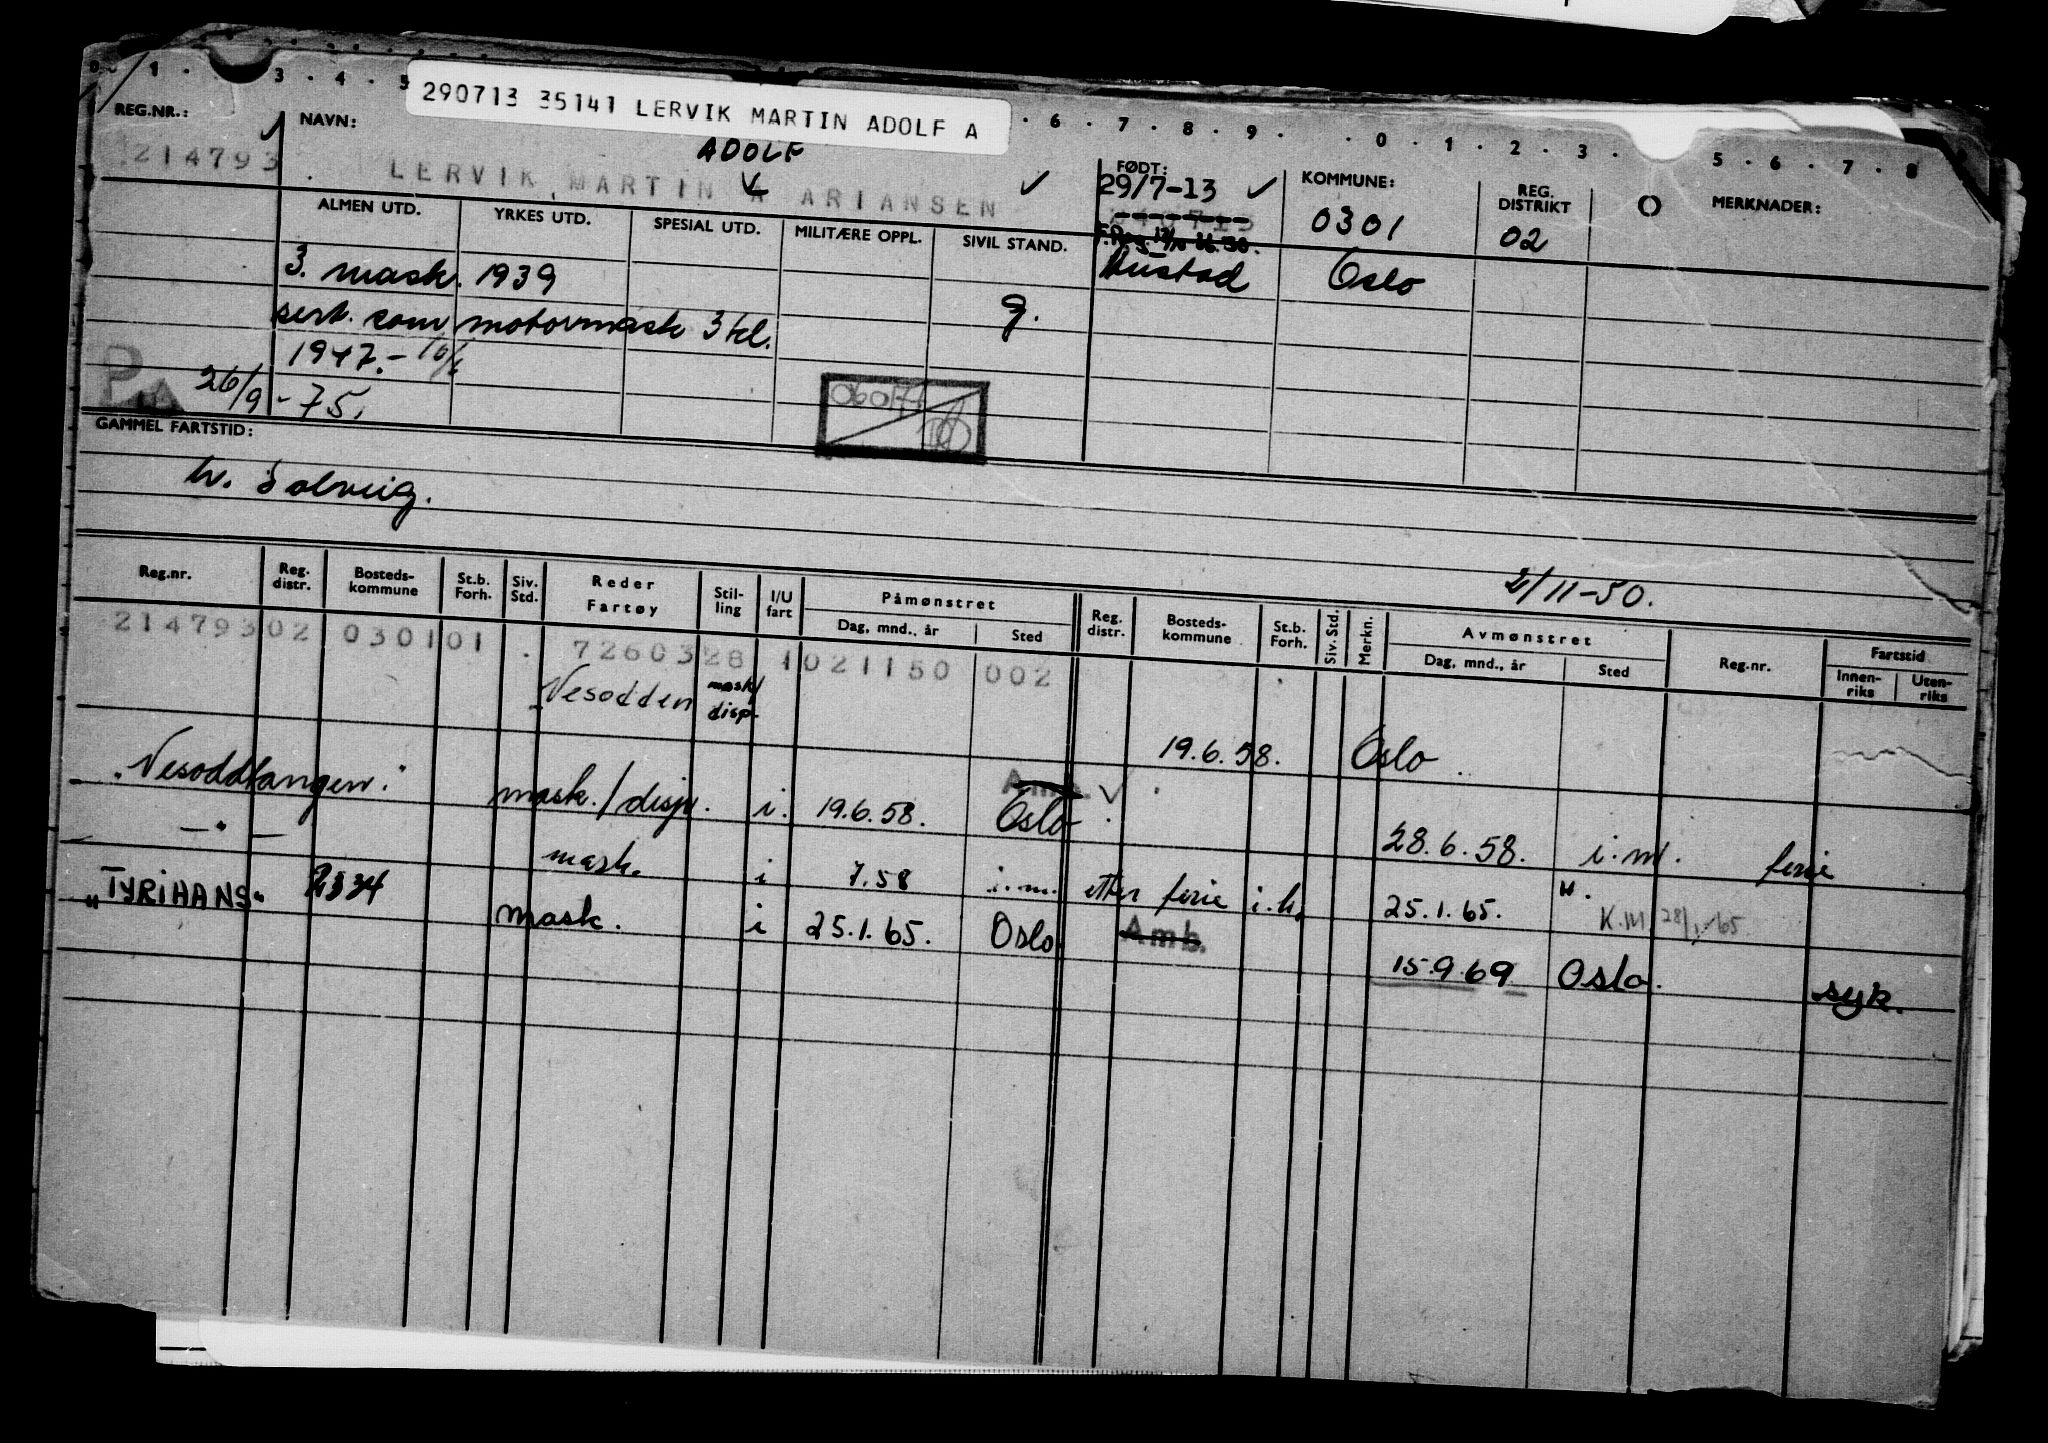 0 · 1 · 3 · 4 · 5 · 6 · 7 · 8 · 9 · · 0 · 1 · 2 · 3 · 5 · 6 · 7 · 8
290713 35141 LERVIK MARTIN ADOLF A
REG.NR.: NAVN: FØDT: KOMMUNE: REG. DISTRIKT MERKNADER:
ADOLF
214793 LERVIK MARTIN A ARIANSEN 29/7-13 0301 02
ALMEN UTD. YRKES UTD. SPESIAL UTD. MILITÆRE OPPL. SIVIL STAND.
3. mask. 1939 g. Hustad Oslo
sert. som motormask 3 kl.
1947.-
26/9 - 75.
GAMMEL FARTSTID:
h. Solveig.
2/11-50.
Reg.nr. Reg. distr. Bosteds- kommune St.b. Forh. Siv. Std. Reder Fartøy Stil- ling I/U fart Påmønstret Dag, mnd., år Sted Reg. distr. Bosteds- kommune St.b. Forh. Siv. Std. Merkn. Avmønstret Dag, mnd., år Sted Reg.nr. Fartstid Innen- riks Uten- riks
214793 02 0301 01 72603 28 1 021150 002
Nesodden mask/ disp. 19.6.58. Oslo
"Nesoddtangen." mask./disp. i. 19.6.58. Oslo 28.6.58. i.m. ferie
—"— mask. i 7.58 i.m. etter ferie i.h. 25.1.65. ".
K.M. 28/1-65
"TYRIHANS" 2534 mask. i 25.1.65. Oslo Amb. 15.9.69 Oslo. syk.